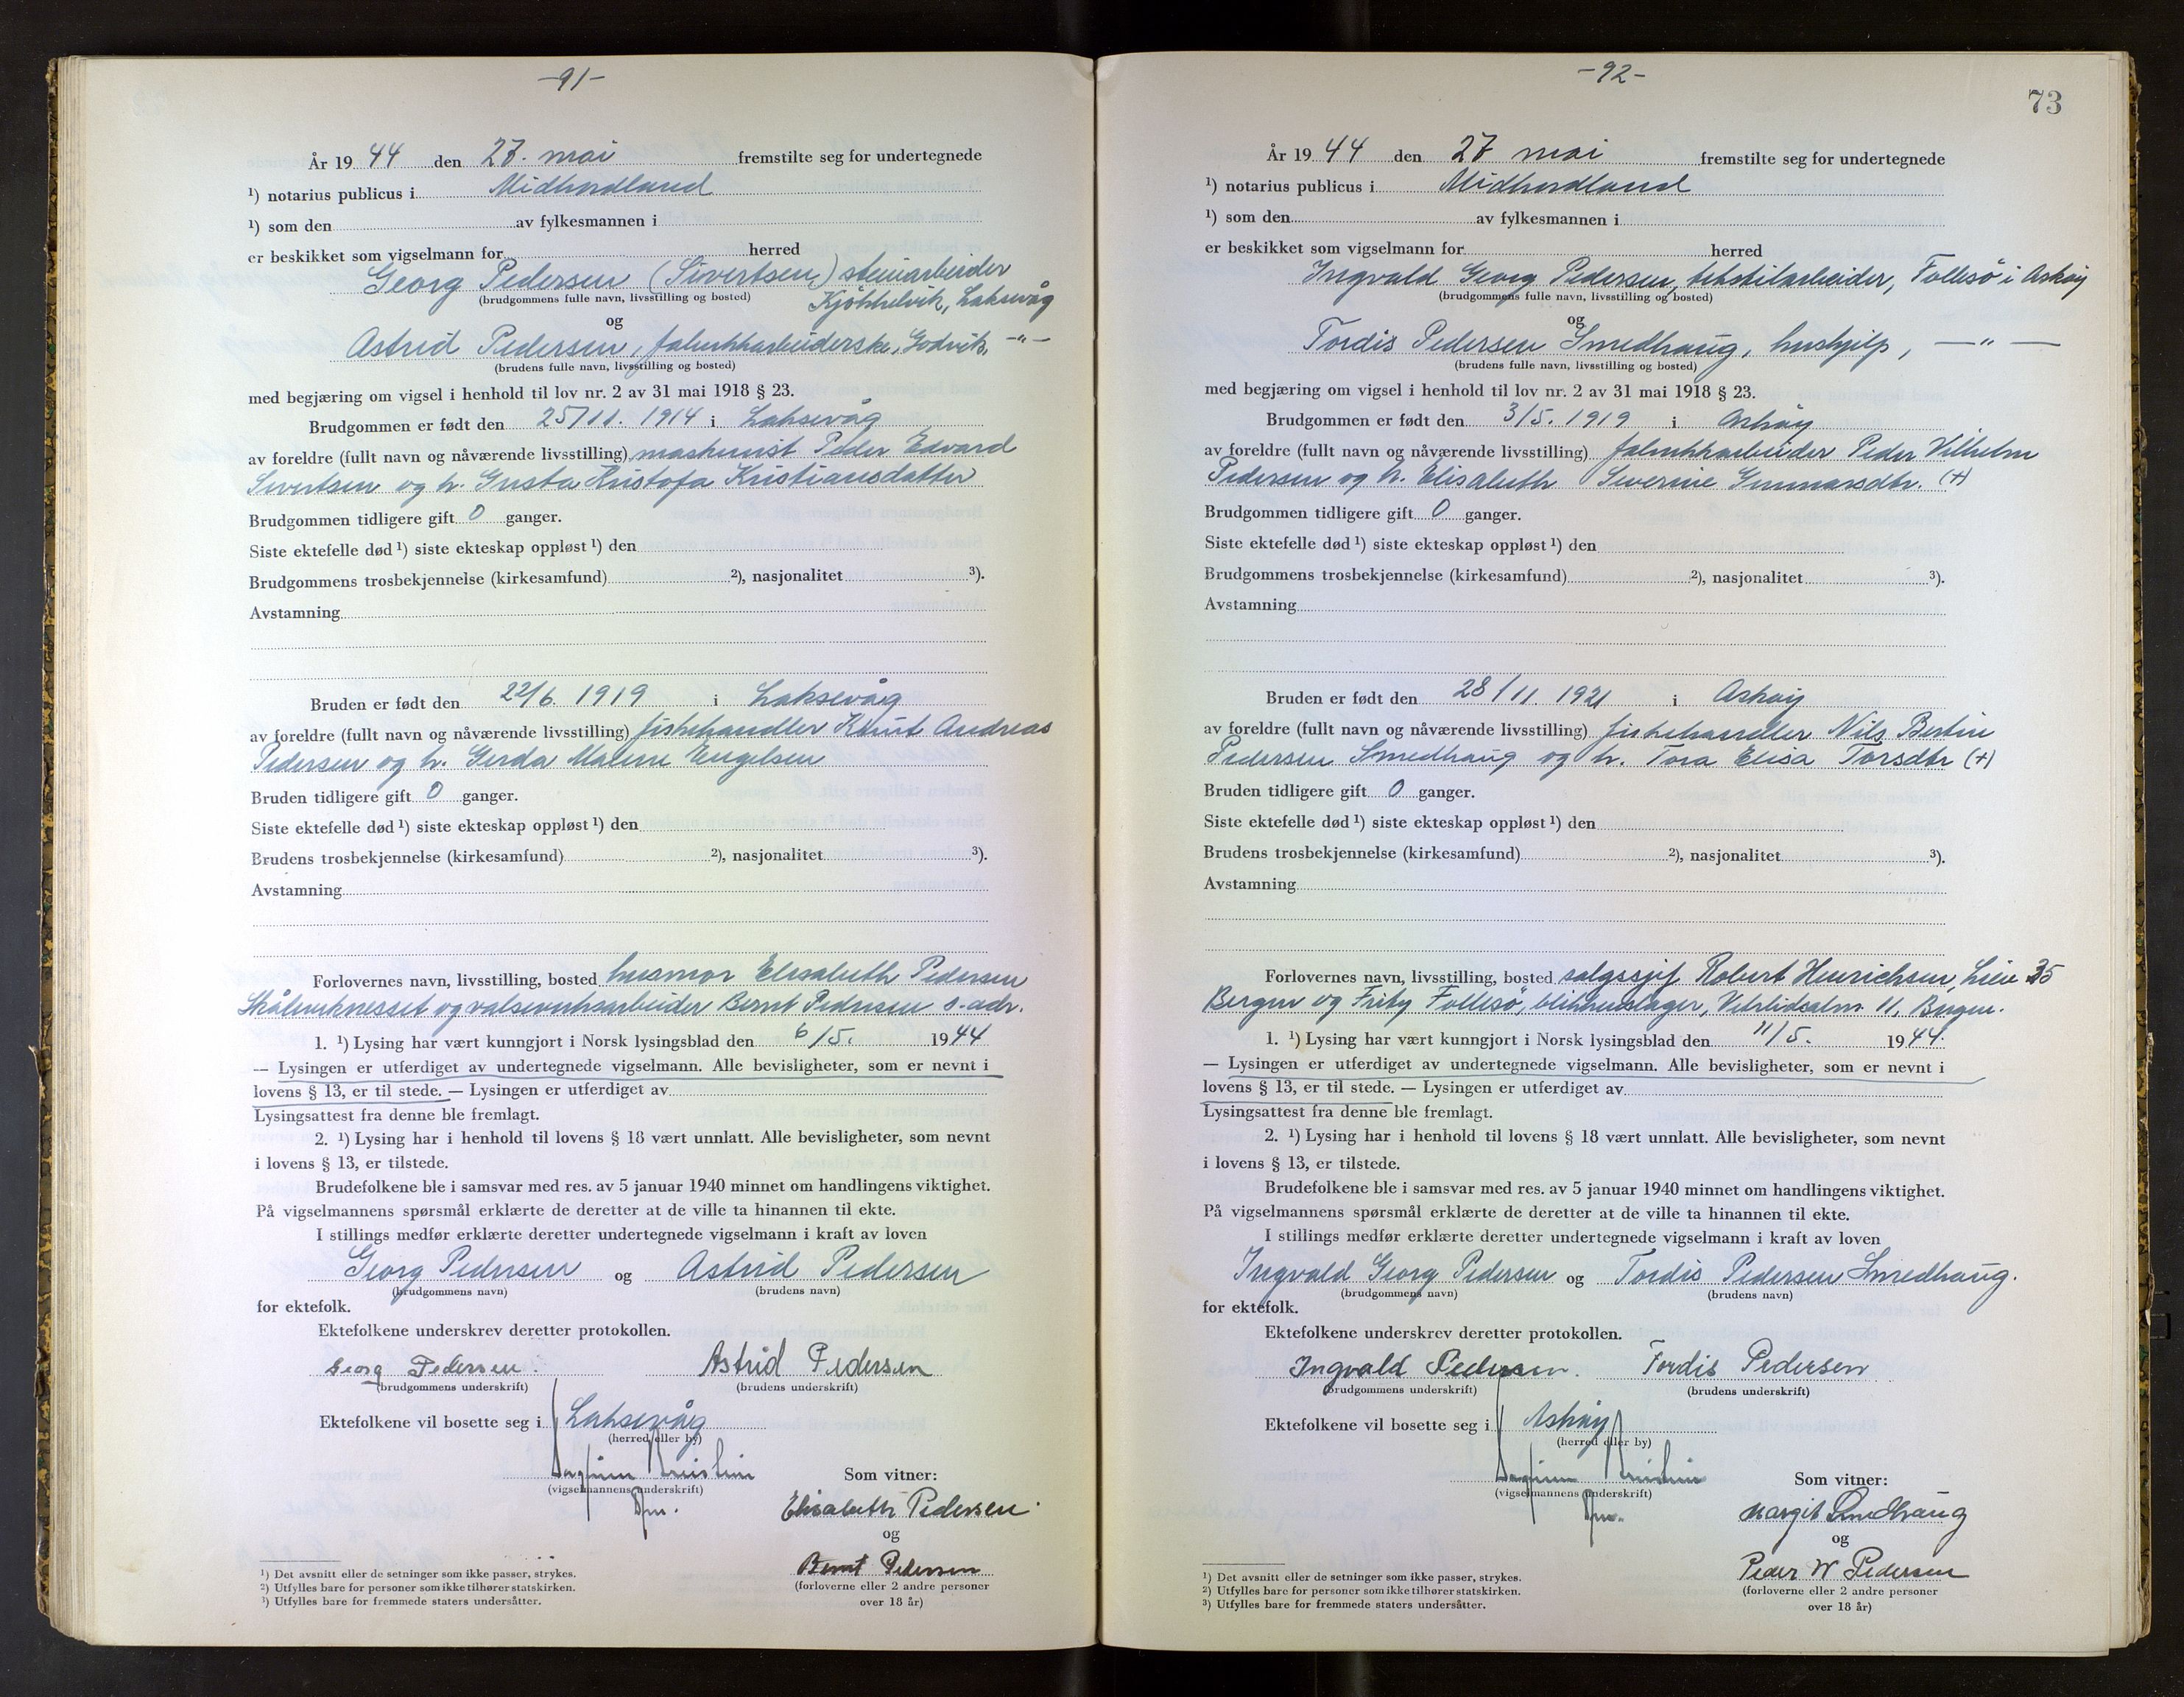 -91-
År 19 44 den 27. mai fremstilte seg for undertegnede
¹) notarius publicus i Midhordland
¹) som den av fylkesmannen i
er beskikket som vigselmann for herred
Georg Pedersen (Sivertsen) steinarbeider
(brudgommens fulle navn, livsstilling og bosted) Kjökkelvik, Laksevåg
og
Astrid Pedersen, fabrikkarbeiderske, Godvik, -"-
(brudens fulle navn, livsstilling og bosted)
med begjæring om vigsel i henhold til lov nr. 2 av 31 mai 1918 § 23.
Brudgommen er født den 25/11. 1914 i Laksevåg
av foreldre (fullt navn og nåværende livsstilling) maskinist Peder Edvard
Sivertsen og h. Gusta Kristofa Kristiansdatter
Brudgommen tidligere gift 0 ganger.
Siste ektefelle død ¹) siste ekteskap oppløst ¹) den
Brudgommens trosbekjennelse (kirkesamfund) ²), nasjonalitet ³).
Avstamning
Bruden er født den 22/6. 1919 i Laksevåg
av foreldre (fullt navn og nåværende livsstilling) fiskehandler Knut Andreas
Pedersen og h. Gerda Malene Engelsen
Bruden tidligere gift 0 ganger.
Siste ektefelle død ¹) siste ekteskap oppløst ¹) den
Brudens trosbekjennelse (kirkesamfund) ²), nasjonalitet ³).
Avstamning
Forlovernes navn, livsstilling, bosted husmor Elisabeth Pedersen
og valseverksarbeider Bernt Pedersen s. adr.
1. ¹) Lysing har vært kunngjort i Norsk lysingsblad den 6/5. 1944
— Lysingen er utferdiget av undertegnede vigselmann. Alle bevisligheter, som er nevnt i
lovens § 13, er til stede. — Lysingen er utferdiget av
Lysingsattest fra denne ble fremlagt.
2. ¹) Lysing har i henhold til lovens § 18 vært unnlatt. Alle bevisligheter, som nevnt
i lovens § 13, er tilstede.
Brudefolkene ble i samsvar med res. av 5 januar 1940 minnet om handlingens viktighet.
På vigselmannens spørsmål erklærte de deretter at de ville ta hinannen til ekte.
I stillings medfør erklærte deretter undertegnede vigselmann i kraft av loven
Georg Pedersen og Astrid Pedersen
(brudgommens navn) (brudens navn)
for ektefolk.
Ektefolkene underskrev deretter protokollen.
Georg Pedersen. Astrid Pedersen
(brudgommens underskrift) (brudens underskrift)
Ektefolkene vil bosette seg i Laksevåg
(herred eller by)
Som vitner:
(vigselmannens underskrift)
Elisabeth Pedersen.
og
Bernt Pedersen
(forloverne eller 2 andre personer
over 18 år)
¹) Det avsnitt eller de setninger som ikke passer, strykes.
²) Utfylles bare for personer som ikke tilhører statskirken.
³) Utfylles bare for fremmede staters undersåtter.
-92-
73
År 19 44 den 27 mai fremstilte seg for undertegnede
¹) notarius publicus i Midhordland
¹) som den av fylkesmannen i
er beskikket som vigselmann for herred
Ingvald Georg Pedersen, tekstilarbeider, Follesö i Askøy
(brudgommens fulle navn, livsstilling og bosted)
og
Tordis Pedersen Smedhaug, hushjelp, -"-
(brudens fulle navn, livsstilling og bosted)
med begjæring om vigsel i henhold til lov nr. 2 av 31 mai 1918 § 23.
Brudgommen er født den 3/5. 1919 i Askøy
av foreldre (fullt navn og nåværende livsstilling) fabrikkarbeider Peder Vilhelm
Pedersen og h. Elisabeth Severine Gunnarsdtr. (+)
Brudgommen tidligere gift 0 ganger.
Siste ektefelle død ¹) siste ekteskap oppløst ¹) den
Brudgommens trosbekjennelse (kirkesamfund) ²), nasjonalitet ³).
Avstamning
Bruden er født den 28/11. 1921 i Askøy
av foreldre (fullt navn og nåværende livsstilling) fiskehandler Nils Bertin
Pedersen Smedhaug og h. Tora Elisa Torsdtr (+)
Bruden tidligere gift 0 ganger.
Siste ektefelle død ¹) siste ekteskap oppløst ¹) den
Brudens trosbekjennelse (kirkesamfund) ²), nasjonalitet ³).
Avstamning
Forlovernes navn, livsstilling, bosted salgssjef Robert Henrichsen, 35
Bergen og Follesö, blikkenslager, 11, Bergen.
1. ¹) Lysing har vært kunngjort i Norsk lysingsblad den 11/5. 1944.
— Lysingen er utferdiget av undertegnede vigselmann. Alle bevisligheter, som er nevnt i
lovens § 13, er til stede. — Lysingen er utferdiget av
Lysingsattest fra denne ble fremlagt.
2. ¹) Lysing har i henhold til lovens § 18 vært unnlatt. Alle bevisligheter, som nevnt
i lovens § 13, er tilstede.
Brudefolkene ble i samsvar med res. av 5 januar 1940 minnet om handlingens viktighet.
På vigselmannens spørsmål erklærte de deretter at de ville ta hinannen til ekte.
I stillings medfør erklærte deretter undertegnede vigselmann i kraft av loven
Ingvald Georg Pedersen og Tordis Pedersen Smedhaug.
(brudgommens navn) (brudens navn)
for ektefolk.
Ektefolkene underskrev deretter protokollen.
Ingvald Pedersen. Tordis Pedersen
(brudgommens underskrift) (brudens underskrift)
Ektefolkene vil bosette seg i Askøy
(herred eller by)
Som vitner:
(vigselmannens underskrift)
Margit Smedhaug
og
Peder W Pedersen
(forloverne eller 2 andre personer
over 18 år)
¹) Det avsnitt eller de setninger som ikke passer, strykes.
²) Utfylles bare for personer som ikke tilhører statskirken.
³) Utfylles bare for fremmede staters undersåtter.